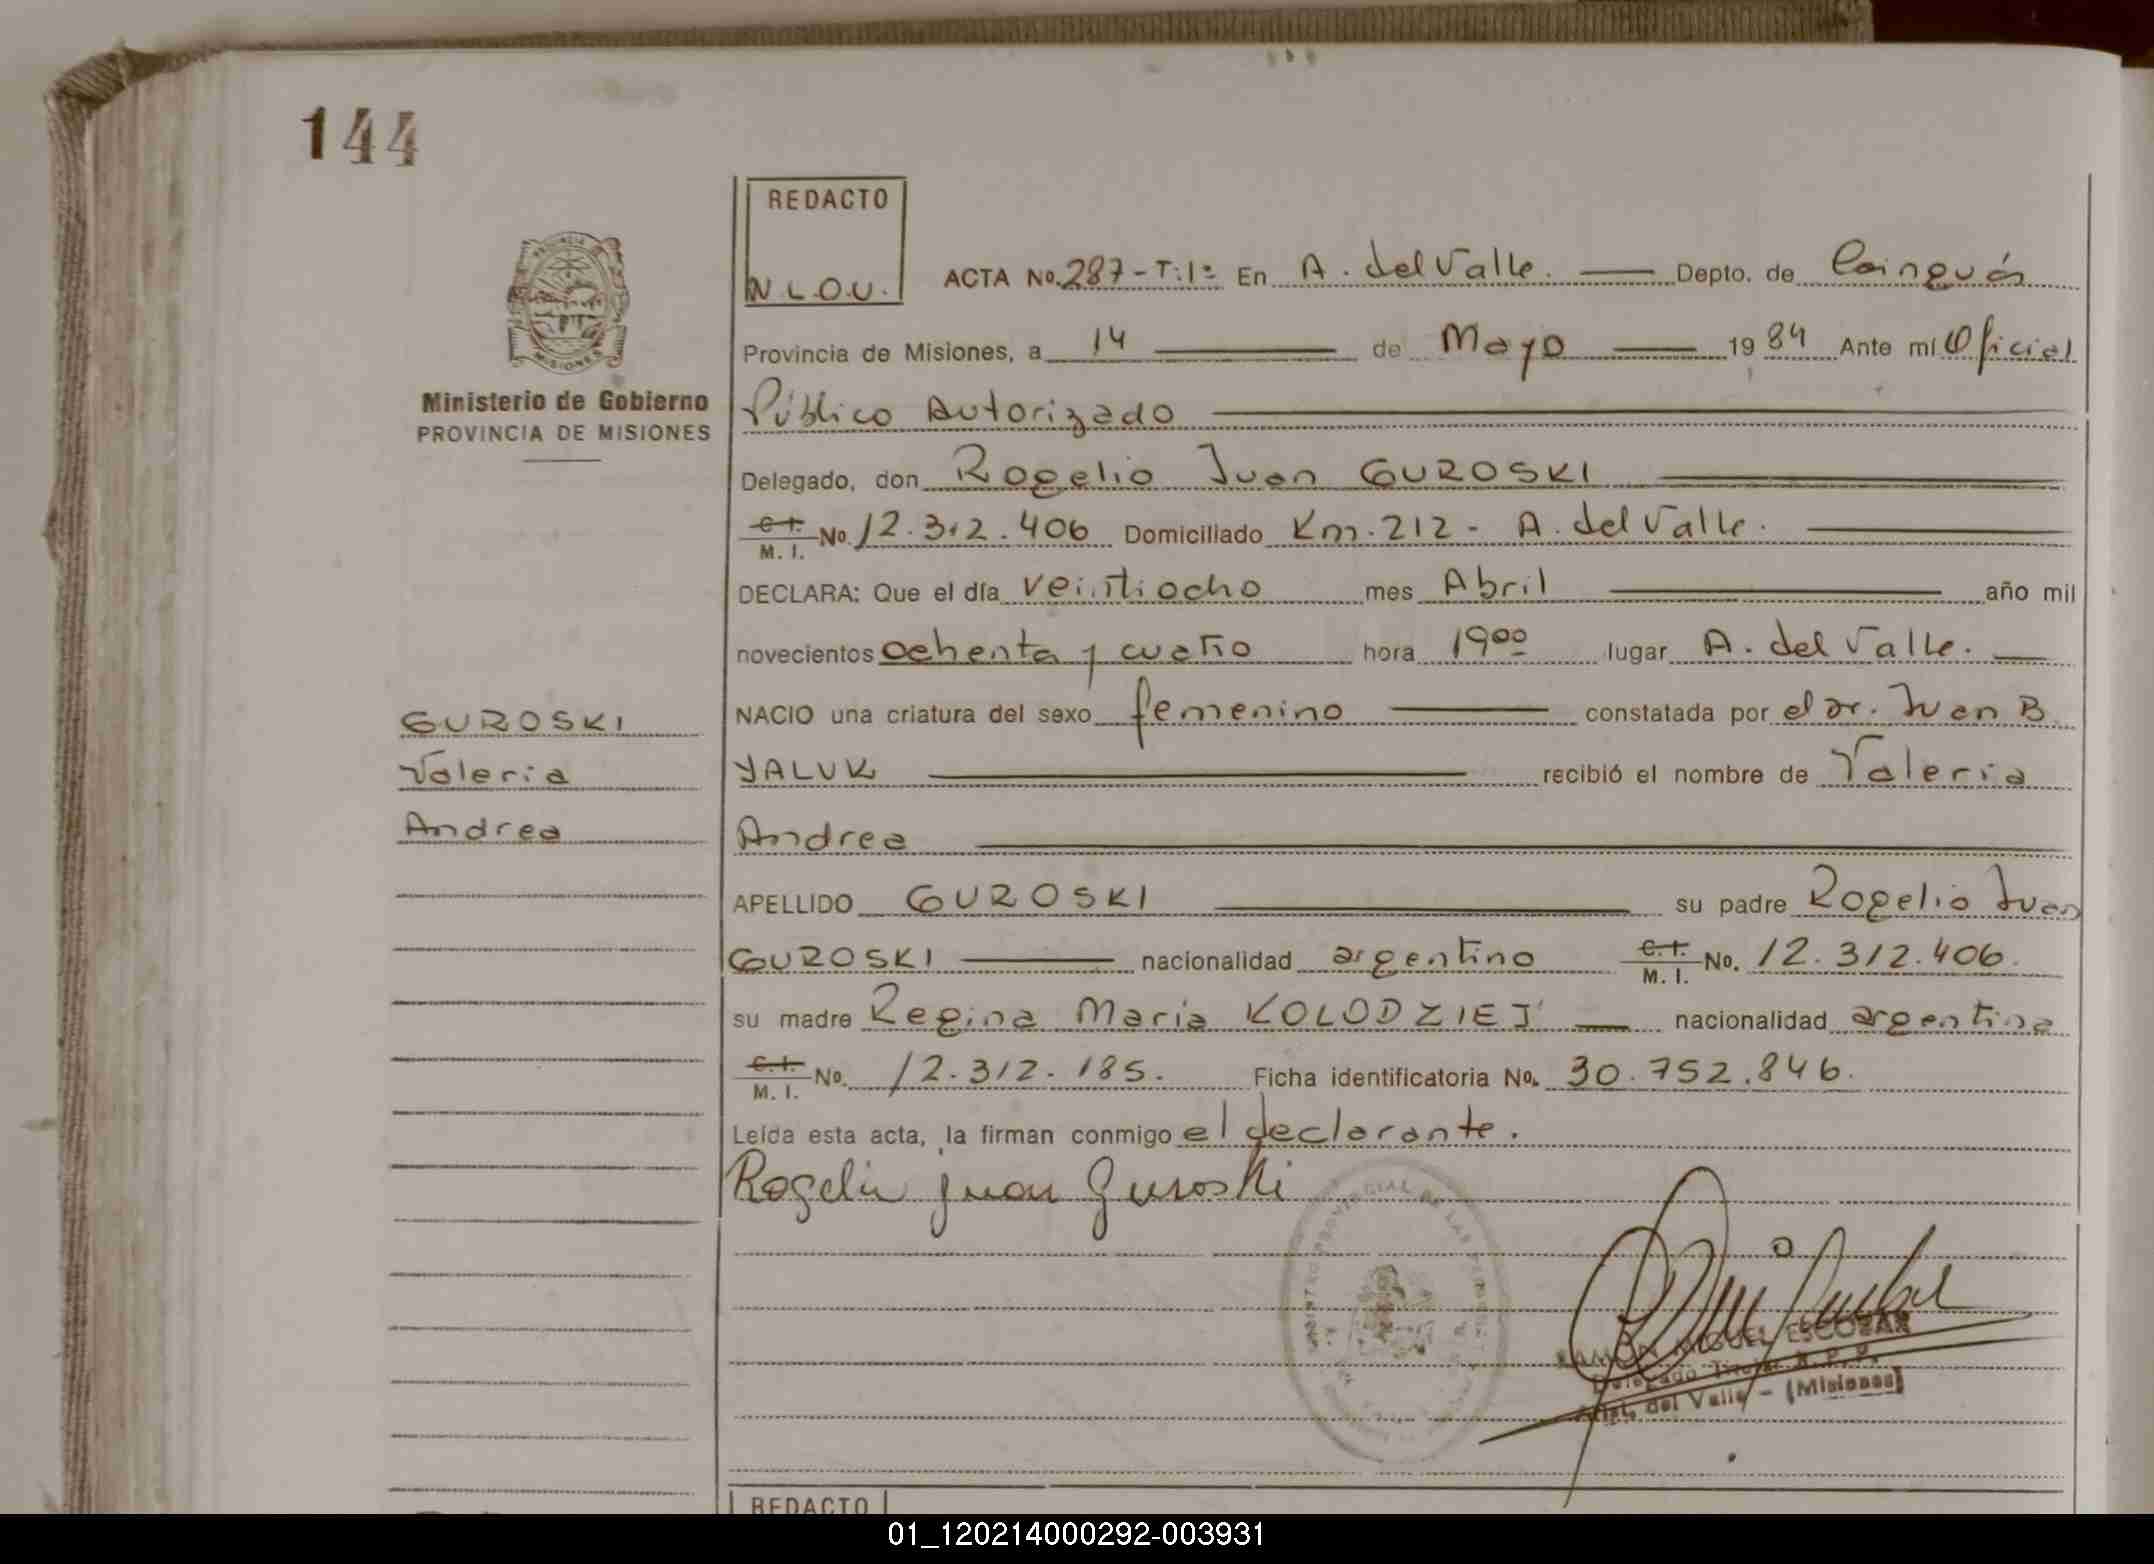 144
REDACTO
N L.O.U.
ACTA No. 287-T:1º En A. del Valle. Depto. de Cainguás
Provincia de Misiones, a 14 de Mayo 1984 Ante mí Oficial
Ministerio de Gobierno
PROVINCIA DE MISIONES
Público Autorizado
Delegado, don Rogelio Juan GUROSKI
C.I. M. I. No. 12.312.406 Domiciliado Km. 212 - A. del Valle.
DECLARA: Que el día veintiocho mes Abril año mil
novecientos ochenta y cuatro hora 19⁰⁰ lugar A. del Valle.
GUROSKI
Valeria
Andrea
NACIO una criatura del sexo femenino constatada por el Dr. Juan B.
YALUK recibió el nombre de Valeria
Andrea
APELLIDO GUROSKI su padre Rogelio Juan
GUROSKI nacionalidad argentino C.I. M. I. No. 12.312.406.
su madre Regina Maria KOLODZIEJ nacionalidad argentina
C.I. M. I. No. 12.312.185. Ficha identificatoria No. 30.752.846.
Leída esta acta, la firman conmigo el declarante.
Rogelio Juan Guroski
RAMON MIGUEL ESCOBAR
Delegado Titular R. P. P.
Arist. del Valle - (Misiones)
REDACTO
01_120214000292-003931